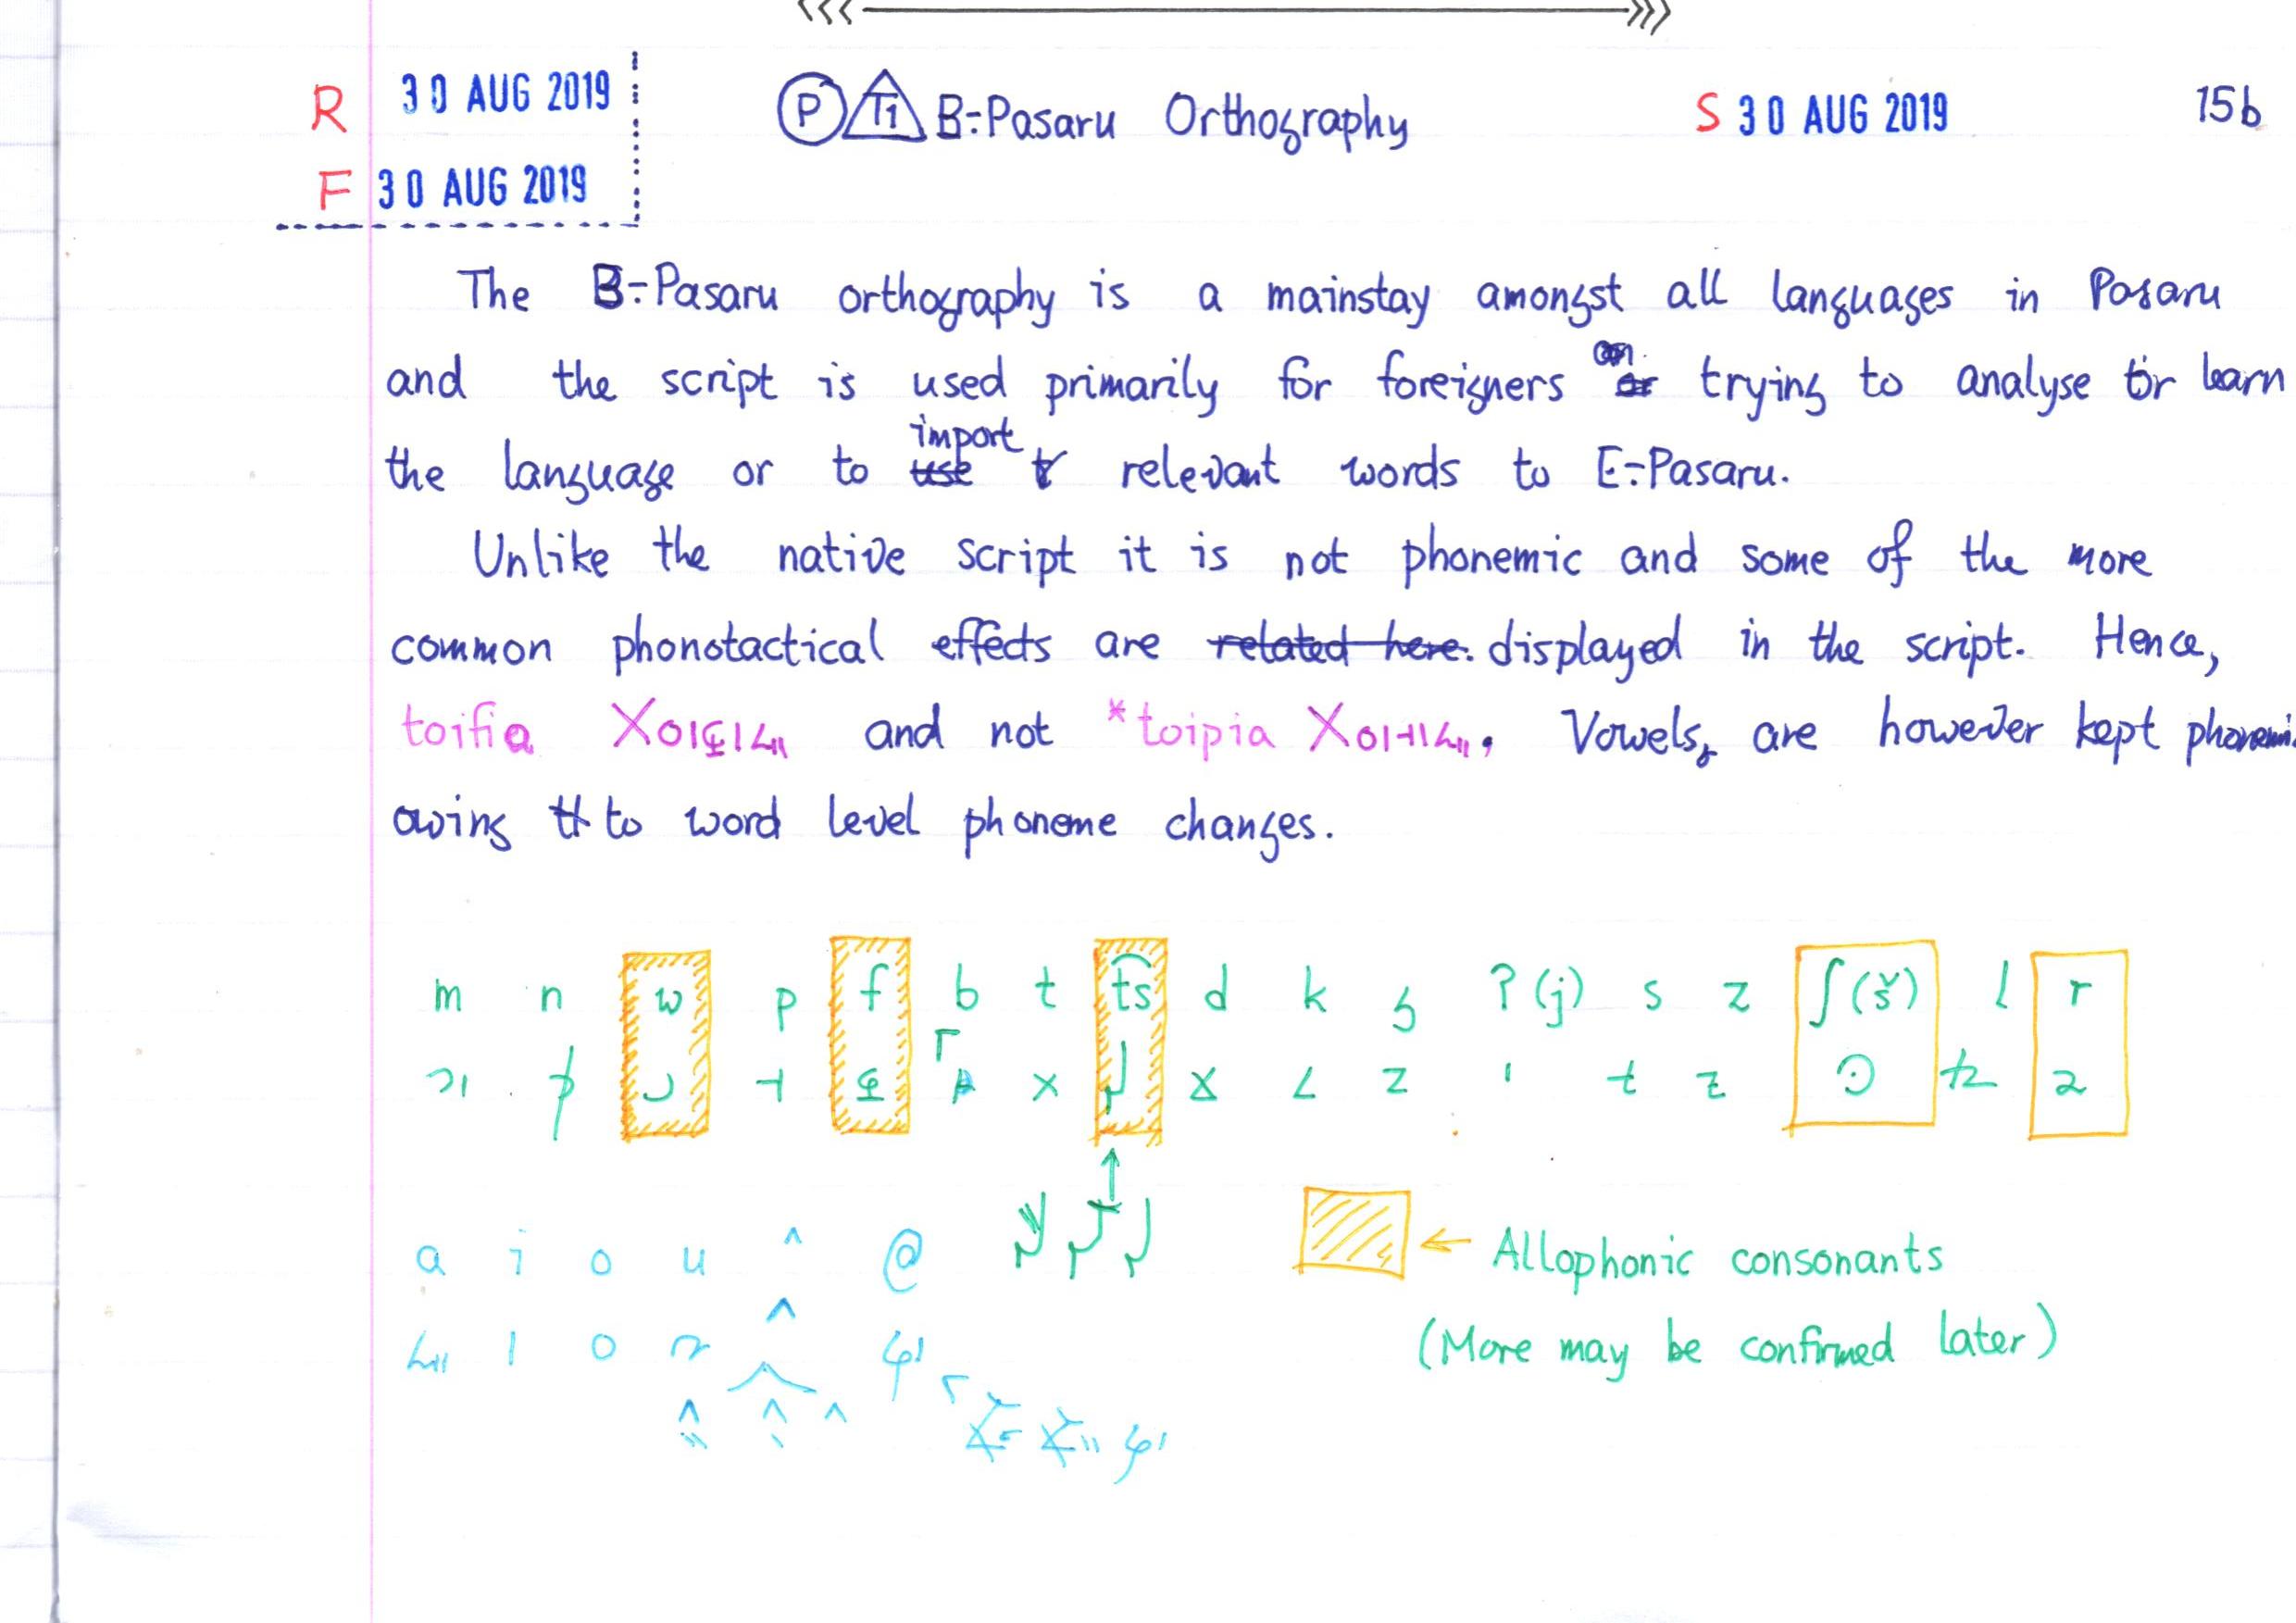 R 30 AUG 2019
F 30 AUG 2019
P T1 B-Pasaru Orthography S 30 AUG 2019 15b
The B-Pasaru orthography is a mainstay amongst all languages in Pasaru
and the script is used primarily for foreigners trying to analyse or learn
the language or to import relevant words to E-Pasaru.
Unlike the native script it is not phonemic and some of the more
common phonotactical effects are related here. displayed in the script. Hence,
toifia and not *toipia Vowels, are however kept
owing to word level phoneme changes.
m n w p f b t t͡s d k g ? (j) s z ʃ (š) l r
a i o u ^ @
← Allophonic consonants
(More may be confirmed later)